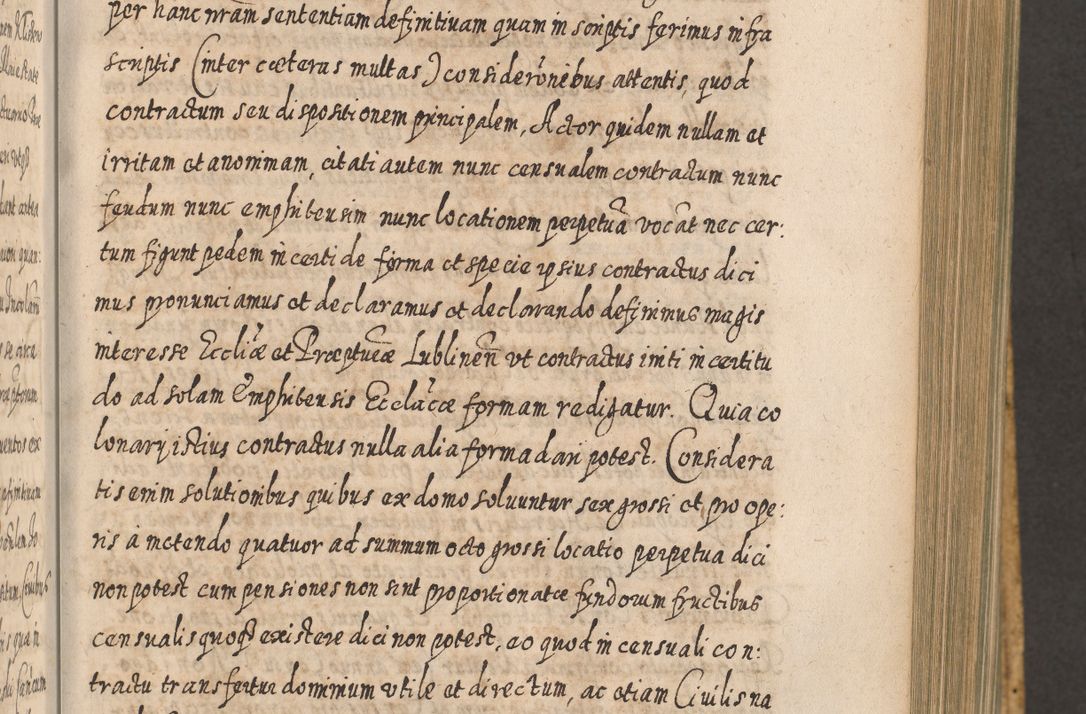 per hanc nram sententiam definitivam quam in scriptis ferimus infra
scriptis (inter cæteras multas) considerõnibus attentis, quod
contractum seu dispositionem principalem, Actor quidem nullam et
irritam et anonimam, citati autem nunc censualem contractum nunc
feudum nunc emphiteusim nunc locationem perpetuã vocãt nec cer:
tum figunt pedem in certi de forma et specie ipsius contractus dici
mus pronunciamus et declaramus et declarando definimus magis
interesse Eccliæ et Præpturæ Lublinen̄ ut contractus initi in certitu
do ad solam Emphiteusis Ecclãcæ formam redigatur. Quia co
lonarij istius contractus nulla alia forma dari potest. Considera
tis enim solutionibus quibus ex domo soluuntur sex grossi et pro ope:
ris à metendo quatuor ad summum octo grossi locatio perpetua dici
non potest cum pensiones non sint proportionatæ fundorum fructibus
censualis quoqꝫ existere dici non potest, eo quod in censuali con:
tractu transfertur dominium utile et directum, ac etiam Civilis na